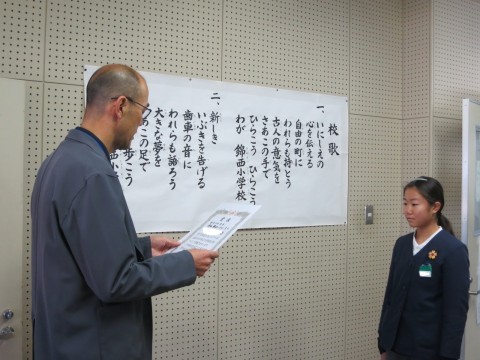 校歌
一、いにしえの
心を伝える
自由の町に
われらも持とう
古人の意気を
さあこの手で
ひらこう ひらこう
わが 錦西小学校
二、新しき
いぶきを告げる
歯車の音に
われらも誦ろう
大きな夢を
この足で
歩こう
錦西小
賞状